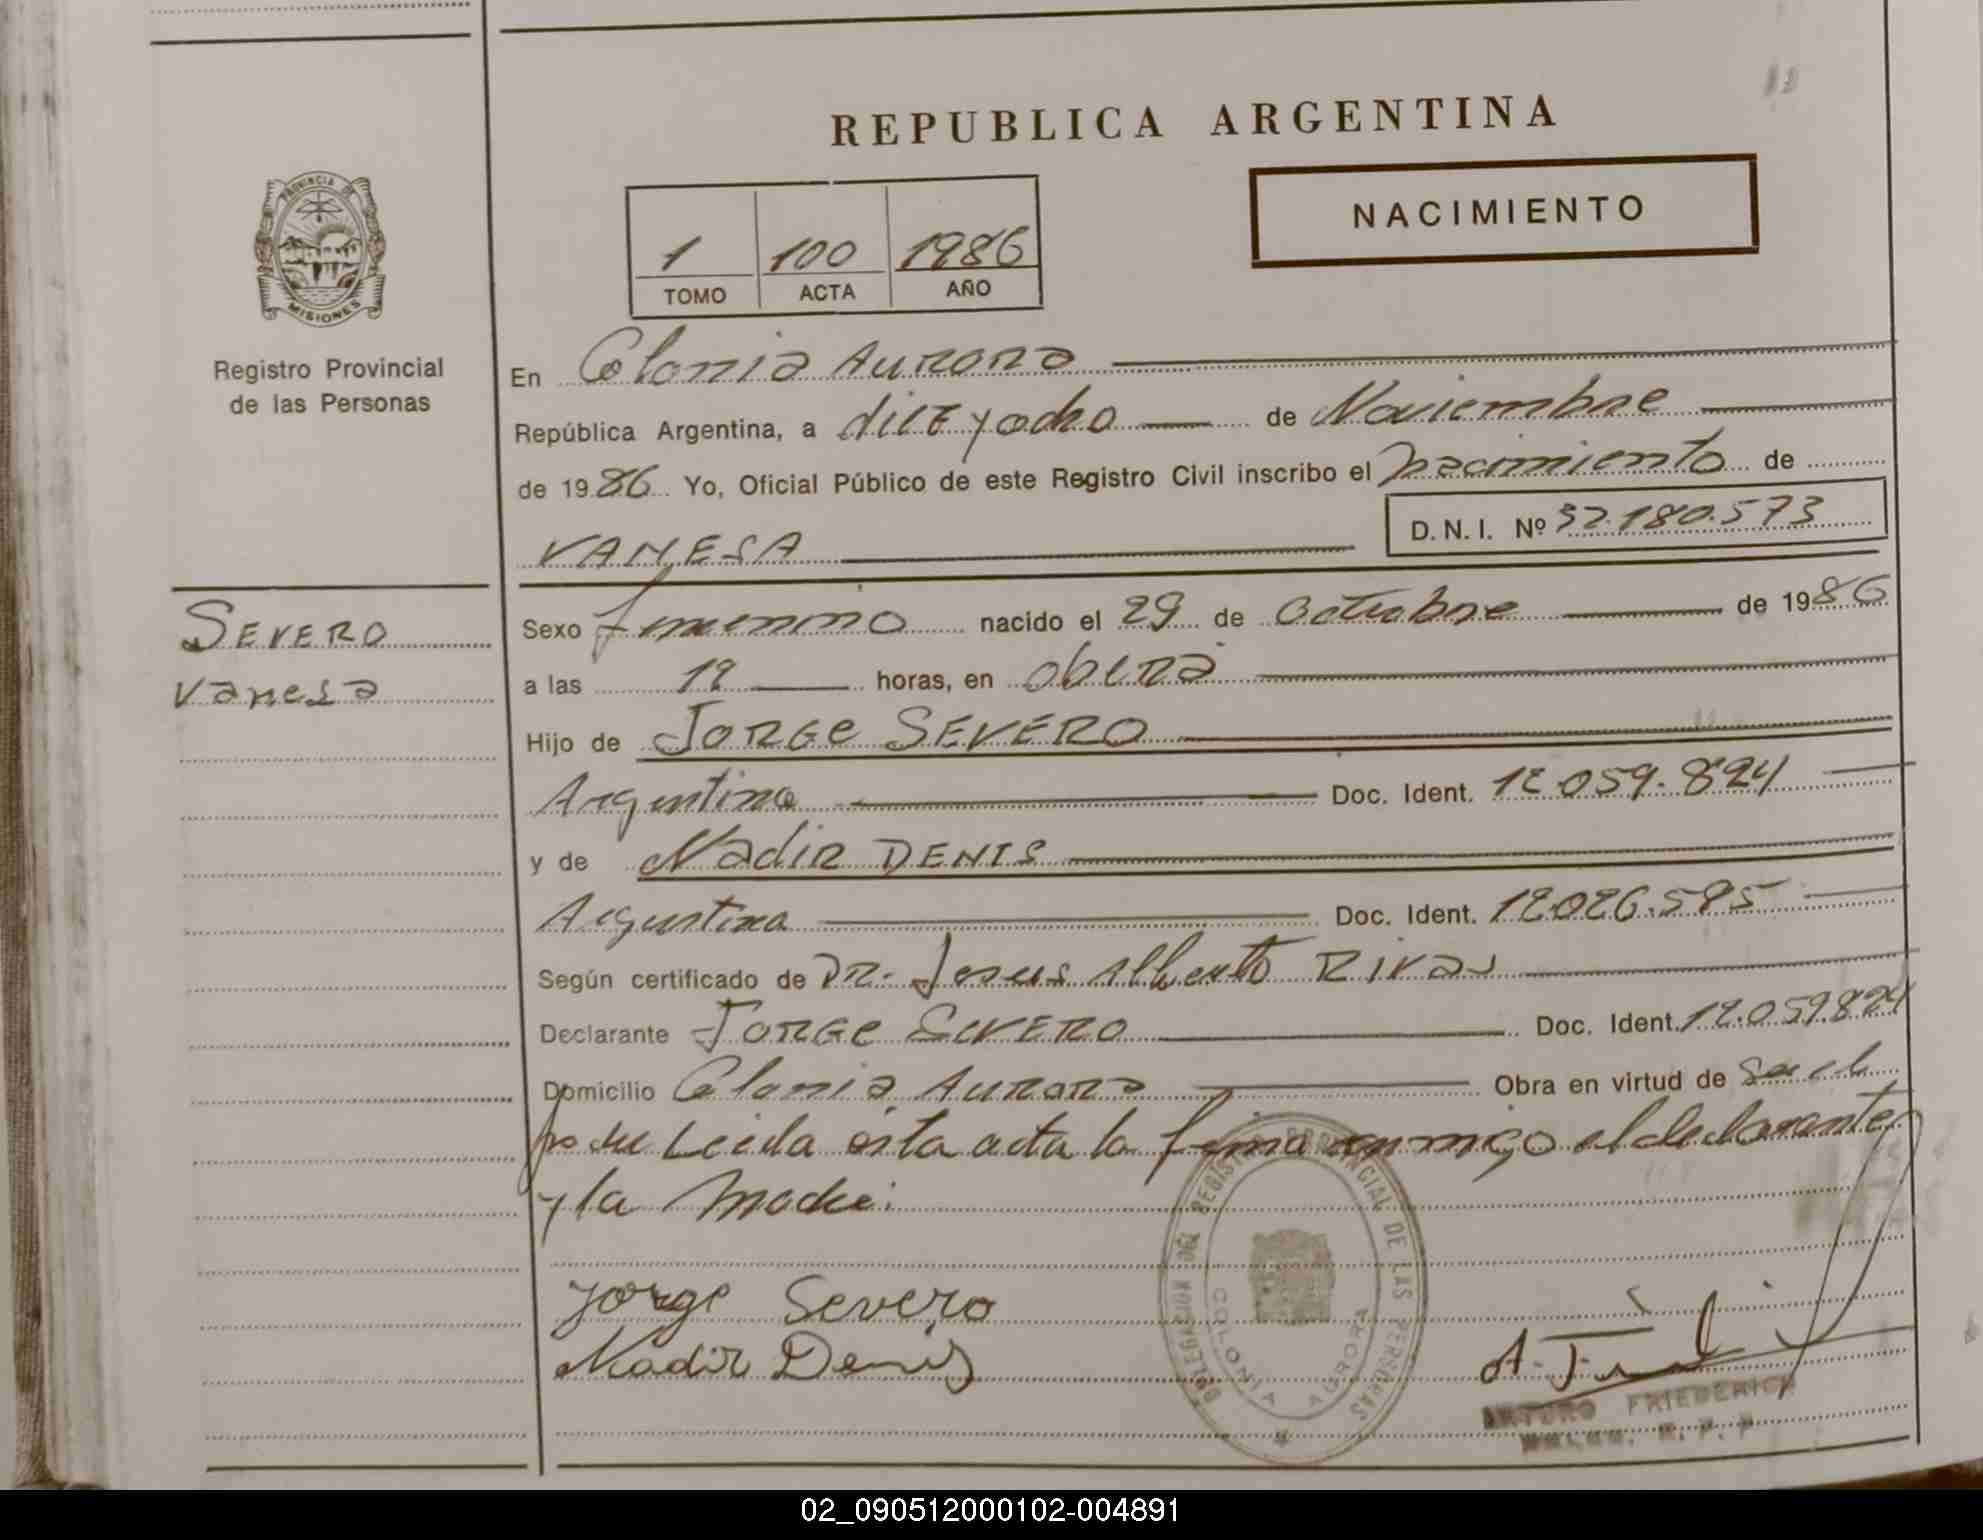 REPUBLICA ARGENTINA
NACIMIENTO
1 100 1986
TOMO ACTA AÑO
PROVINCIA DE
MISIONES
Registro Provincial
de las Personas
En Colonia Aurora
República Argentina, a diez y ocho de Noviembre
de 1986 Yo, Oficial Público de este Registro Civil inscribo el nacimiento de
VANESA D.N.I. Nº 32.180.573
Severo
Vanesa
Sexo femenino nacido el 29 de Octubre de 1986
a las 12 horas, en oberá
Hijo de Jorge SEVERO
Argentino Doc. Ident. 12.059.824
y de Nadir DENIS
Argentina Doc. Ident. 12.026.595
Según certificado de DR. Jesus Alberto Rivas
Declarante Jorge SEVERO Doc. Ident. 12.059824
Domicilio Colonia Aurora Obra en virtud de
Leida esta acta la firma conmigo el declarante
y la Madre.
Jorge Severo
Nadir Denis
DELEGACION DEL REGISTRO PROVINCIAL DE LAS PERSONAS
COLONIA AURORA
ARTURO FRIEDERICH
02_090512000102-004891